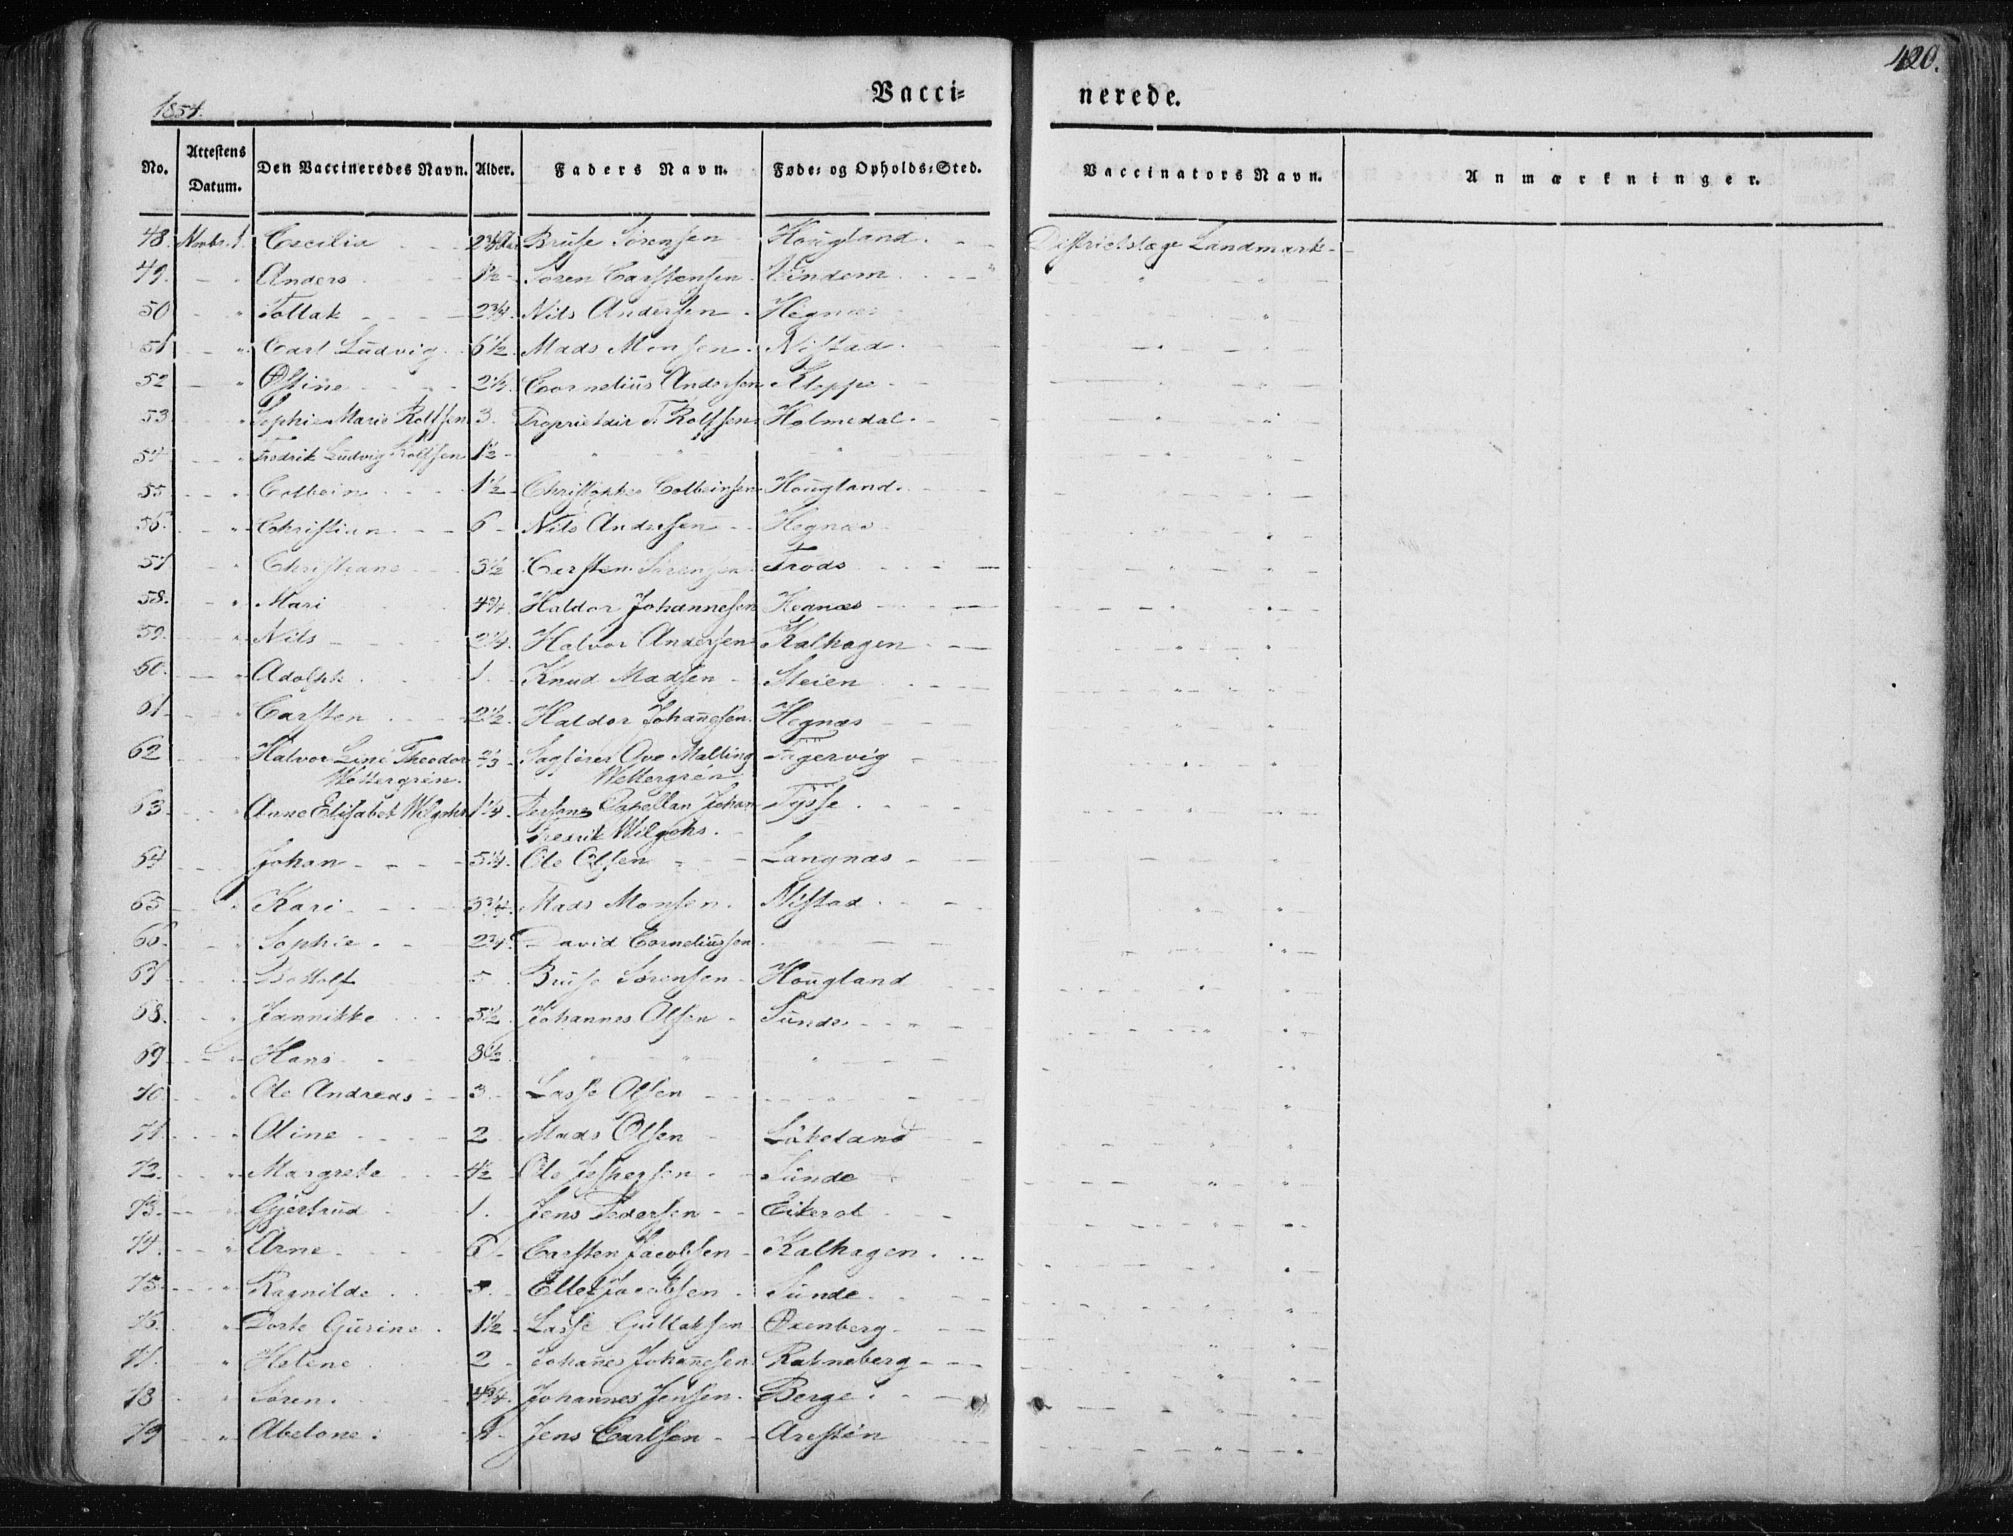 420.
Vacci=
nerede.
1854.
No. Attestens Datum. Den Vaccineredes Navn. Alder. Faders Navn. Føde= og Opholds=Sted. Vaccinators Navn. Anmærkninger.
48. Novbr. 1. Cecilia Bruse Sørensen Hougland. Districtslæge Landmark
49. " Anders 1½ Søren Carstensen Vindem "
50 " Tollak 2¾ Nils Andersen Hegnæs "
51 " Carl Ludvig 6½ Mads Monsen Nistad "
52 " Cornelius Andersen Kleppe "
53. " Sophie Marie Rolfsen 3. Proprietair Rolfsen Holmedal "
54 " Fredrik Ludvig Rolfsen 1½ " " " "
55 " Colbein 1½ Christopher Colbeinsen Hougland. "
56. " Christian 6 Nils Andersen Hegnæs "
57 " Christiane 3½ Carsten Sørensen "
58. " Mari 4¾ Haldor Johannesen Hegnæs "
59. " Nils 2¼ Halvor Andersen Kalhagen "
60. " Adolph 1. Knud Madsen Steien "
61 " Carsten 2½ Haldor Johannesen Hegnæs "
62 " Halvor Theodor Sagfører Ove Malling Fagervig "
Wettergrén. Wettergrén
63 " Anne Elisabet Wilgohs 1¼ Capellan Johan Tysse "
Fredrik Wilgohs.
64 " Johan 5¼ Ole Olsen Langnæs "
65 " Kari 3¼ Mads Monsen. Nistad "
66. " Sophie 2¾ David Corneliussen "
67 " Bottolf 5 Bruse Sørensen Hougland "
68. " Jannikke 5½ Johannes Olsen Sunde "
69 " Hans " " " "
70 " Ole Andreas 3 Lasse Olsen "
71 " Oline 2 Mads Olsen Lökeland "
72. " Margrete 4½ Ole Jespersen Sunde "
73. " Gjertrud 1. Jens Pedersen "
74 " Arne Carsten Jacobsen Kalhagen. "
75. " Ragnilde 3. Jacobsen Sunde. "
76. " Dorte Gurine 1½ Lasse Gullaksen Oxenberg "
77. " Helene 2 Johannes Johannesen "
78 " Søren. 4¾ Johannes Jensen Berge "
79 " Abelone Jens Carlsen "